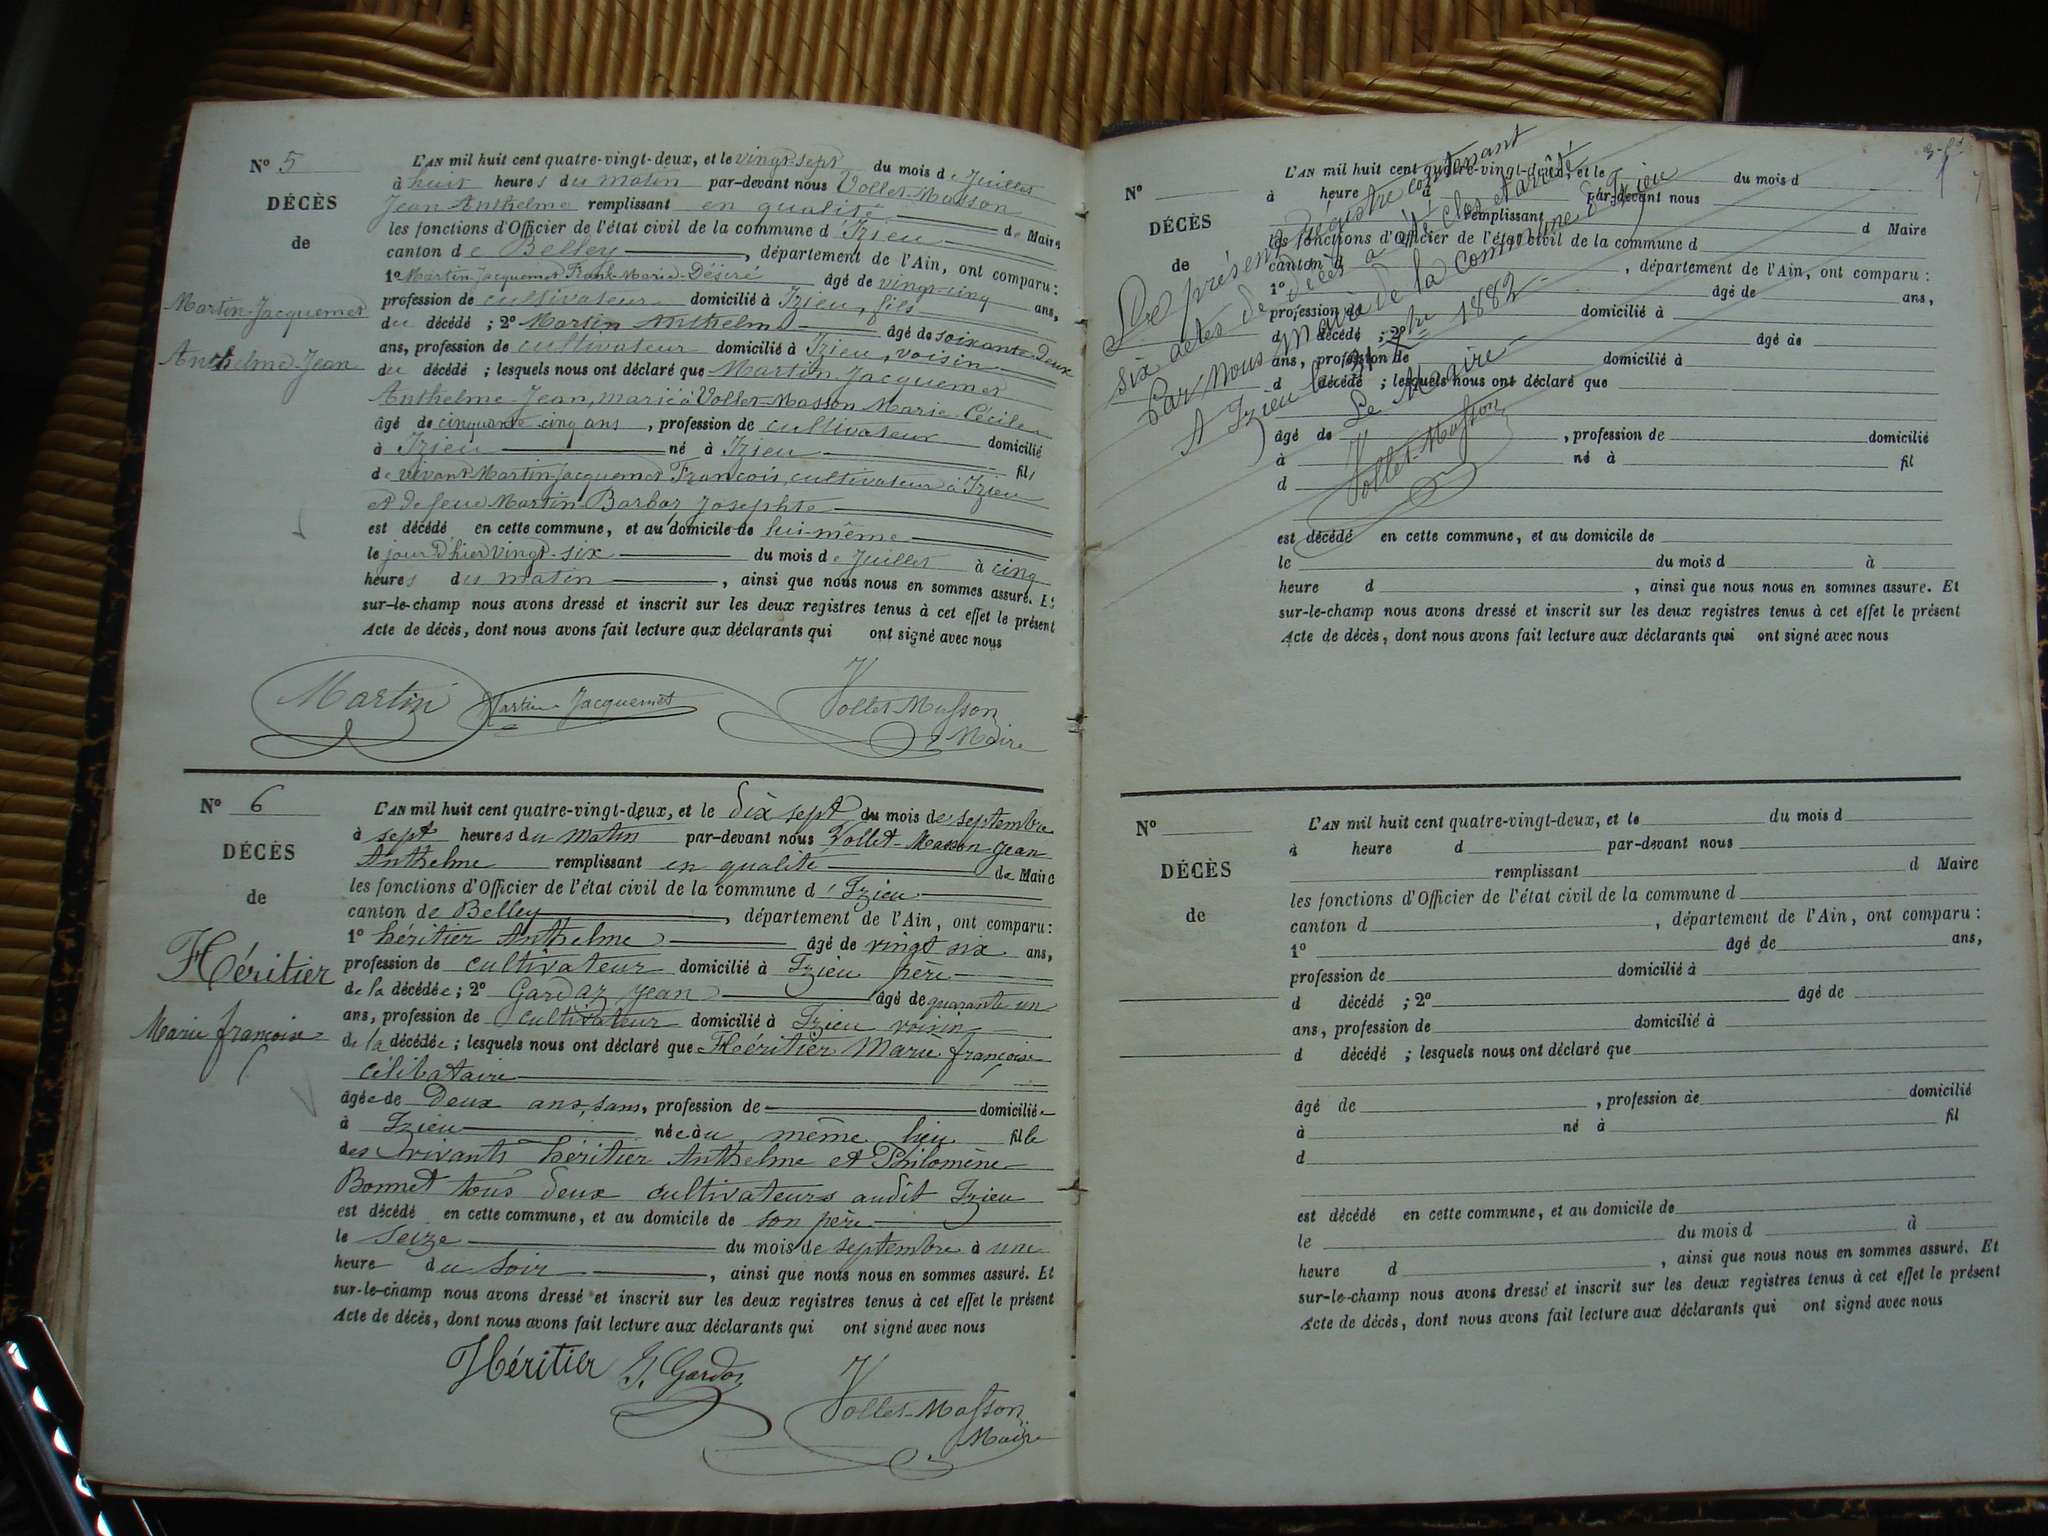 Nº 5
DÉCÈS
de
Martin-Jacquemet
Anthelme Jean
L'AN mil huit cent quatre-vingt-deux, et le vingt sept du mois de Juillet
à huit heures du matin par-devant nous Vollet-Masson
Jean Anthelme remplissant en qualité de Maire
les fonctions d'Officier de l'état civil de la commune d'Izieu
canton de Belley, département de l'Ain, ont comparu :
1º Martin-Jacquemet Frank-Marie-Désiré âgé de vingt-cinq ans,
profession de cultivateur domicilié à Izieu, fils
du décédé ; 2º Martin Anthelme âgé de soixante-deux
ans, profession de cultivateur domicilié à Izieu, voisin
du décédé ; lesquels nous ont déclaré que Martin-Jacquemet
Anthelme-Jean, marié à Vollet-Masson Marie-Cécile
âgé de cinquante cinq ans, profession de cultivateur domicilié
à Izieu né à Izieu fils
de vivant Martin-Jacquemet François, cultivateur à Izieu
et de feue Martin-Barbaz Josephte
est décédé en cette commune, et au domicile de lui-même
le jour d'hier vingt-six du mois de Juillet à cinq
heures du matin, ainsi que nous nous en sommes assuré. Et
sur-le-champ nous avons dressé et inscrit sur les deux registres tenus à cet effet le présent
Acte de décès, dont nous avons fait lecture aux déclarants qui ont signé avec nous
Martin Martin-Jacquemet Vollet-Masson
Maire
Nº 6
DÉCÈS
de
Héritier
Marie françoise
L'AN mil huit cent quatre-vingt-deux, et le dix sept du mois de septembre
à sept heures du matin par-devant nous Vollet-Masson Jean
Anthelme remplissant en qualité de Maire
les fonctions d'Officier de l'état civil de la commune d'Izieu
canton de Belley, département de l'Ain, ont comparu :
1º héritier Anthelme âgé de vingt six ans,
profession de cultivateur domicilié à Izieu père
de la décédée ; 2º Gardaz Jean âgé de quarante un
ans, profession de cultivateur domicilié à Izieu voisin
de la décédée ; lesquels nous ont déclaré que Héritier Marie françoise
célibataire
âgée de deux ans, sans, profession de domiciliée
à Izieu née au même lieu fille
des vivants héritier Anthelme et Philomène
Bonnet tous deux cultivateurs audit Izieu
est décédé en cette commune, et au domicile de son père
le seize du mois de septembre à une
heure du soir, ainsi que nous nous en sommes assuré. Et
sur-le-champ nous avons dressé et inscrit sur les deux registres tenus à cet effet le présent
Acte de décès, dont nous avons fait lecture aux déclarants qui ont signé avec nous
Héritier J. Gardaz
Vollet-Masson
Maire
Nº
DÉCÈS
de
L'AN mil huit cent quatre-vingt-deux, et le du mois d
à heure d par-devant nous
remplissant d Maire
les fonctions d'Officier de l'état civil de la commune d
canton d , département de l'Ain, ont comparu :
1º âgé de ans,
profession de domicilié à
d décédé ; 2º âgé de
ans, profession de domicilié à
d décédé ; lesquels nous ont déclaré que
âgé de , profession de domicilié
à né à fil
d
est décédé en cette commune, et au domicile de
le du mois d à
heure d , ainsi que nous nous en sommes assuré. Et
sur-le-champ nous avons dressé et inscrit sur les deux registres tenus à cet effet le présent
Acte de décès, dont nous avons fait lecture aux déclarants qui ont signé avec nous
Le présent régistre contenant
six actes de décès a été clos et arrêté
Par Nous Maire de la commune d'Izieu
A Izieu le 31 1882
Le Maire
Vollet-Masson
Nº
DÉCÈS
de
L'AN mil huit cent quatre-vingt-deux, et le du mois d
à heure d par-devant nous
remplissant d Maire
les fonctions d'Officier de l'état civil de la commune d
canton d , département de l'Ain, ont comparu :
1º âgé de ans,
profession de domicilié à
d décédé ; 2º âgé de
ans, profession de domicilié à
d décédé ; lesquels nous ont déclaré que
âgé de , profession de domicilié
à né à fil
d
est décédé en cette commune, et au domicile de
le du mois d à
heure d , ainsi que nous nous en sommes assuré. Et
sur-le-champ nous avons dressé et inscrit sur les deux registres tenus à cet effet le présent
Acte de décès, dont nous avons fait lecture aux déclarants qui ont signé avec nous